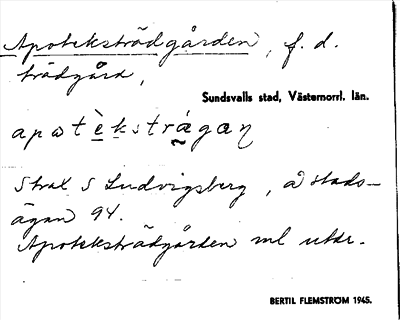 Apoteksträdgården, f. d.
trädgård,
Sundsvalls stad, Västernorrl. län.
apωtèkstrágaη
Strax S Ludvigsberg, å stads-
ägan 94.
Apoteksträdgården ml uttr.
BERTIL FLEMSTRÖM 1945.